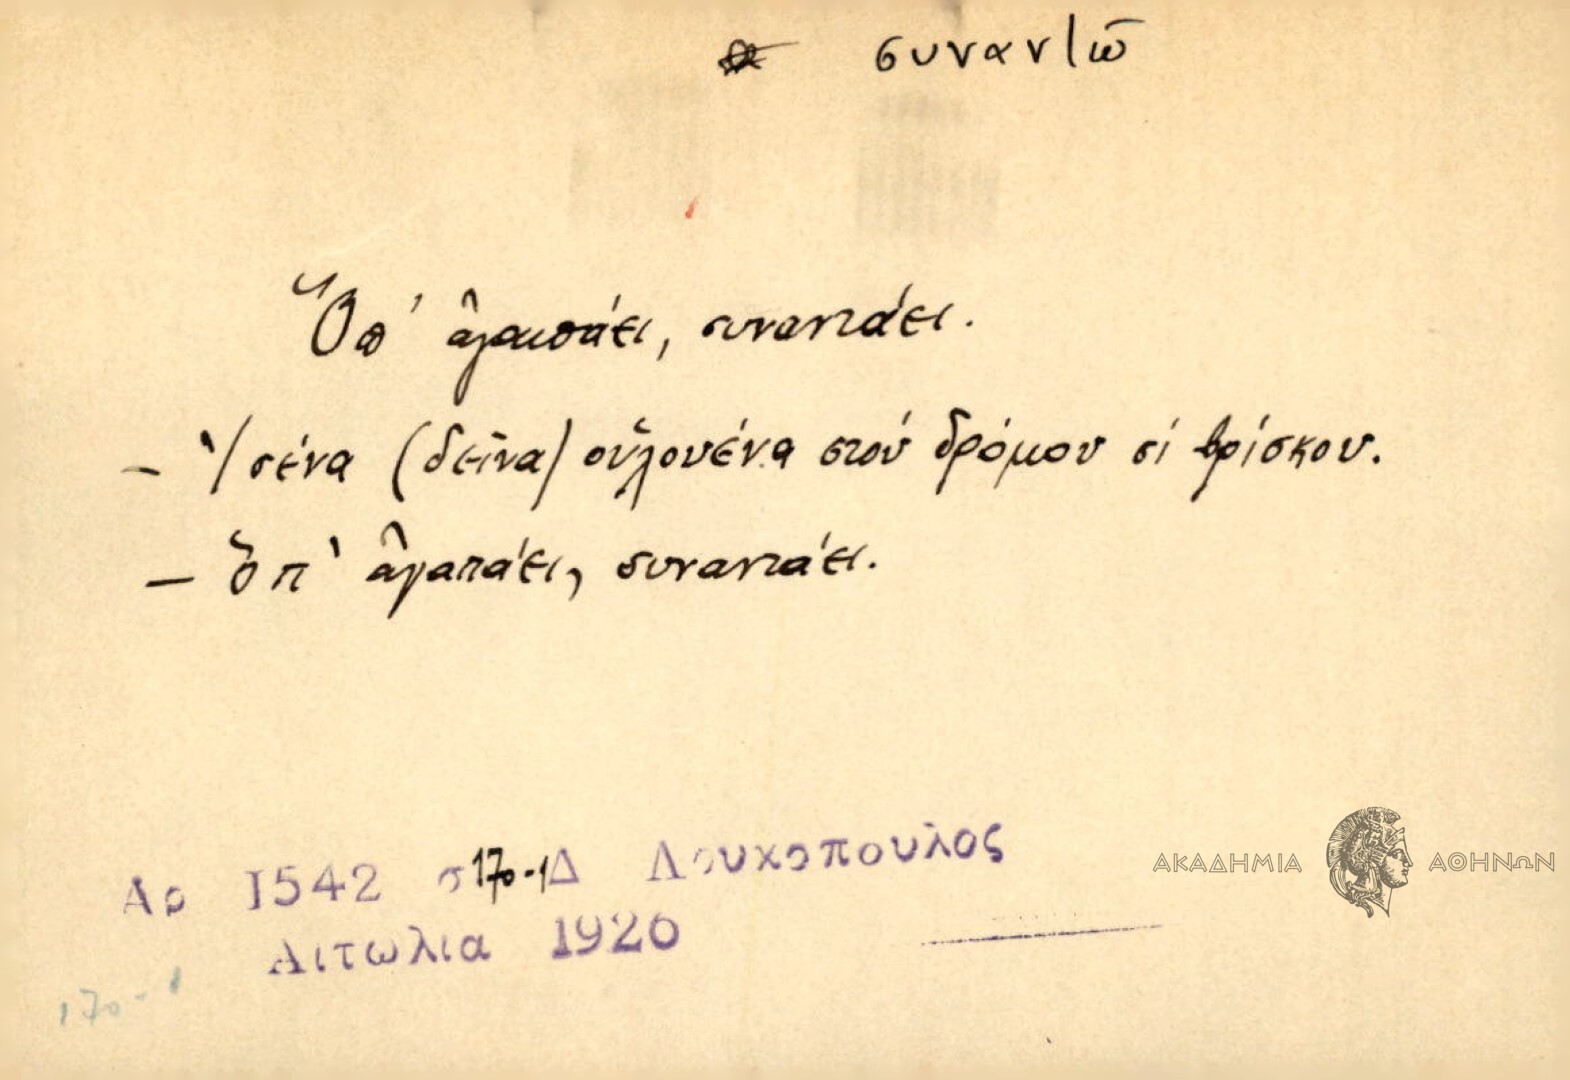 συναντῶ
Ὅπ' ἀγαπάει, συναντάει.
– Ἰσένα (δεῖνα) οὑλουένα στού δρόμου σί βρίσκου.
– Ὅπ' ἀγαπάει, συναντάει.
Αρ 1542 σ 170-1 Δ Λουκοπουλος
Αιτωλια 1920
170-1
ΑΚΑΔΗΜΙΑ ΑΘΗΝΩΝ